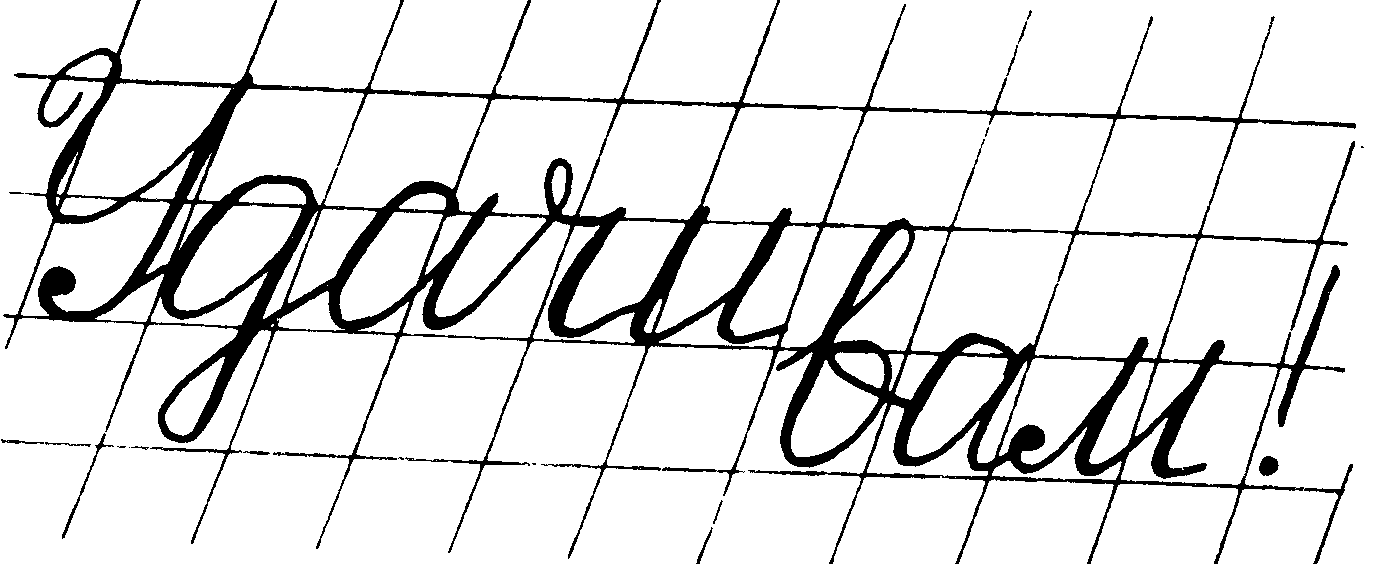 Удачи
вам!